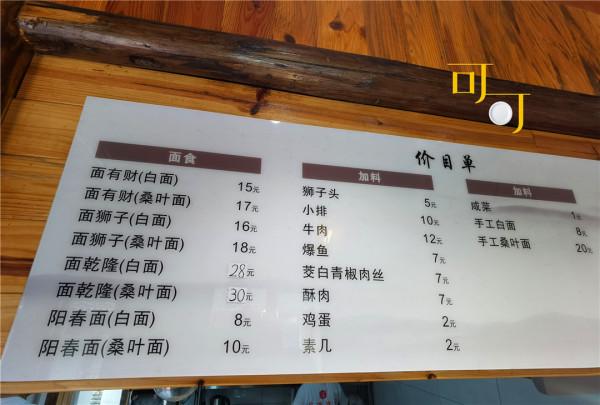 可可
价目单
面食
面有财(白面) 15元
面有财(桑叶面) 17元
面狮子(白面) 16元
面狮子(桑叶面) 18元
面乾隆(白面) 28元
面乾隆(桑叶面) 30元
阳春面(白面) 8元
阳春面(桑叶面) 10元
加料
狮子头 5元
小排 10元
牛肉 12元
爆鱼 7元
茭白青椒肉丝 7元
酥肉 7元
鸡蛋 2元
素几 2元
加料
咸菜 1元
手工白面 8元
手工桑叶面 20元